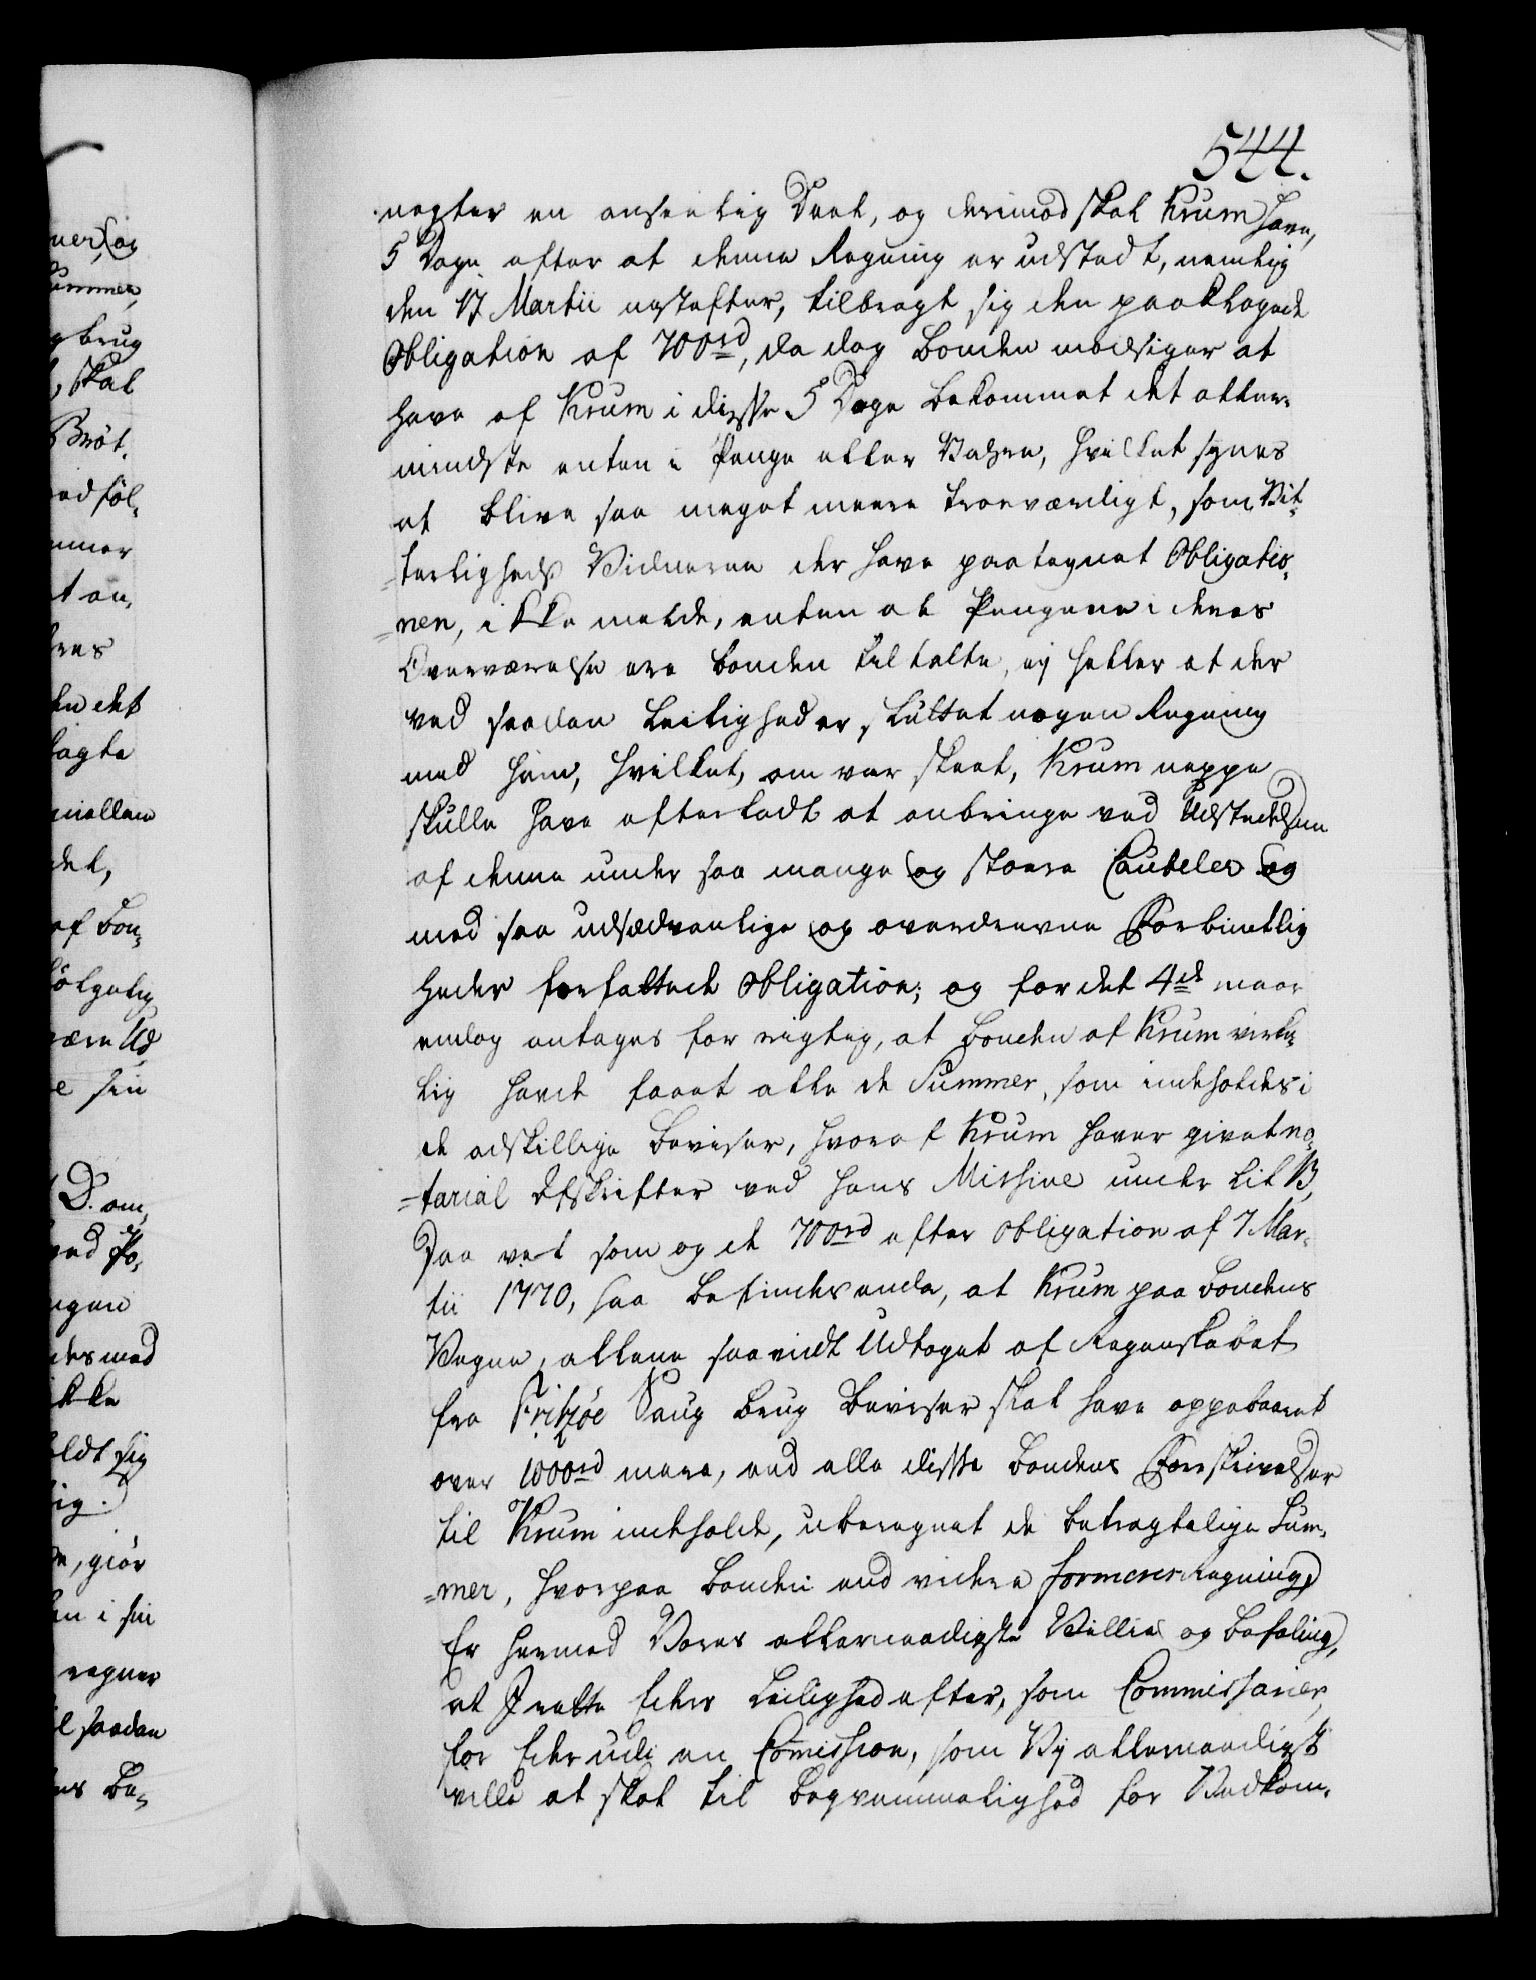 544.
negter en anseelig Deel, og derimod skal Krum have,
5 Dage efter at denne Regning er udstedt, nemlig
den 17 Martii nestefter, tilbragt sig den paaklagede
Obligation af 700rd, da dog Bonden modsiger at
have af Krum i disse 5 Dage bekommet det aller-
mindste enten i Penge eller Vahre, hvilket synes
at blive saa meget meere troeværdigt, som Vit-
terligheds Vidnerne der have paategnet Obligatio-
=nen, ikke melde, enten at Pengene i deres
Overværelse ere Bonden tiltalte, ej heller at der
ved saadan Leilighed er sluttet nogen Regning
med ham, hvilket, om var skeet, Krum neppe
skulle have efterladt at anbringe ved Udstedelsen
af denne under saa mange og stoere Cauteler og
med saa udsædvanlige og overdrevne Forbindtlig
heder forfattede Obligation; og for det 4de naar
endog antages for rigtig, at Bonden af Krum virke-
lig havde faaet alle de Summer, som indeholdes i
de adskillige Beviser, hvoraf Krum haver givet no-
=tarial Afskrifter ved hans Missive under Lit B,
Saa vel som og de 700rd efter Obligation af 7 Mar-
tii 1770, saa befindes enda, at Krum paa Bondens
Vegne, allene saavidt Udtoget af Regenskabet
fra Fritzöe Saug Brug beviser skal have oppebaaret
over 1000rd mere, end alle disse Bondens Forskrivelser
til Krum indeholde, uberegnet de betragtelige Sum-
=mer, hvorpaa Bonden end videre formerer Regning,
Er hermed Vores allernaadigste Villie og Befaling,
at I rette Eders Leilighed efter, som Commissarier,
for Eder udi en Comission, som Vij allernaadigst
ville at skal til Beqvemmelighed for Vedkom-